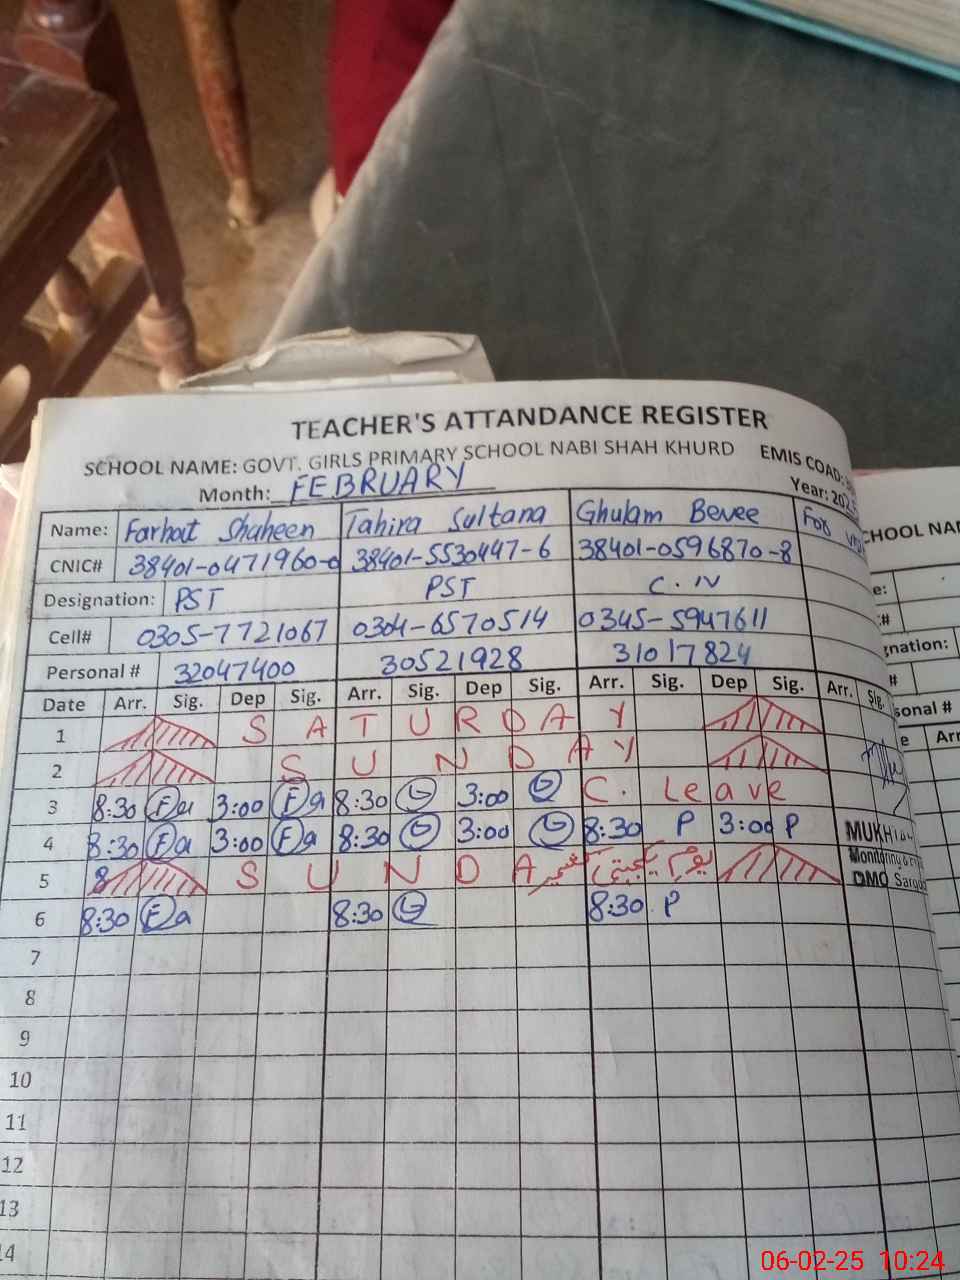 TEACHER'S ATTANDANCE REGISTER
SCHOOL NAME: GOVT. GIRLS PRIMARY SCHOOL NABI SHAH KHURD EMIS COAD:
Month: FEBRUARY Year: 202
Name: Farhat Shaheen Tahira Sultana Ghulam Bevee For
CNIC# 38401-0471960-0 38401-5530447-6 38401-0596870-8
Designation: PST PST C. IV
Cell# 0305-7721067 0304-6570514 0345-5947611
Personal # 32047400 30521928 31017824
Date Arr. Sig. Dep Sig. Arr. Sig. Dep Sig. Arr. Sig. Dep Sig. Arr. Sig.
1 SATURDAY
2 SUNDAY
3 8:30 Fa 3:00 Fa 8:30 3:00 C. Leave
4 8:30 Fa 3:00 Fa 8:30 3:00 8:30 P 3:00 P
MUKH
Monitoring
DMO Sargo
5 8 SUNDA یوم یکجہتی کشمیر
6 8:30 Fa 8:30 8:30 P
7
8
9
10
11
12
13
14
CHOOL NA
e:
#
gnation:
#
sonal #
e Arr
06-02-25 10:24